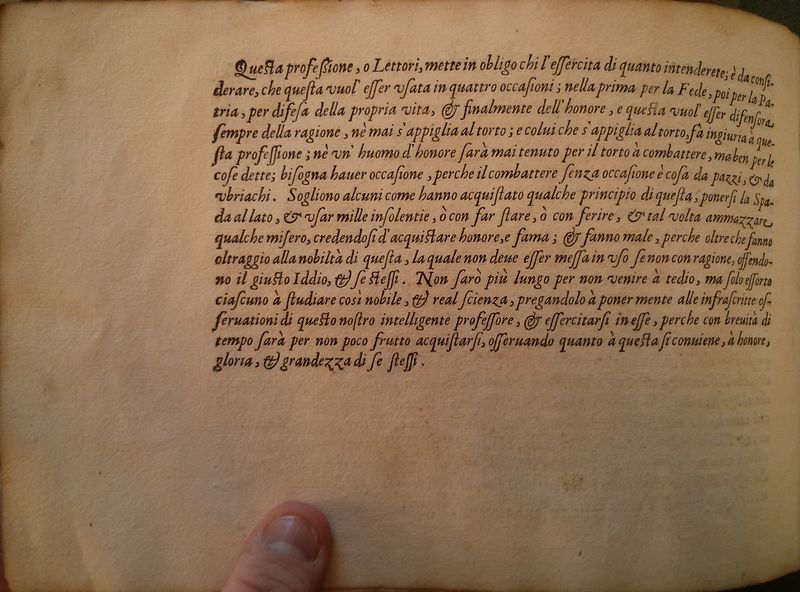 Queſta profeſſione, o Lettori, mette in obligo chi l'eſſercita di quanto intenderete; è da conſi-
derare, che queſta vuol' eſſer vſata in quattro occaſioni; nella prima per la Fede, poi per la Pa-
tria, per difeſa della propria vita, & finalmente dell'honore, e queſta vuol' eſſer difenſora
ſempre della ragione, nè mai s'appiglia al torto; e colui che s'appiglia al torto, fà ingiuria à que-
ſta profeſſione; nè vn' huomo d'honore ſarà mai tenuto per il torto à combattere, ma ben per le
coſe dette; biſogna hauer occaſione, perche il combattere ſenza occaſione è coſa da pazzi, & da
vbriachi. Sogliono alcuni come hanno acquiſtato qualche principio di queſta, ponerſi la Spa-
da al lato, & vſar mille inſolentie, ò con far ſtare, ò con ferire, & tal volta ammazzare
qualche miſero, credendoſi d'acquiſtare honore, e fama; & fanno male, perche oltre che fanno
oltraggio alla nobiltà di queſta, la quale non deue eſſer meſſa in vſo ſe non con ragione, offendo-
no il giuſto Iddio, & ſe ſteſſi. Non ſarò più lungo per non venire à tedio, ma ſolo eſſorto
ciaſcuno à ſtudiare così nobile, & real ſcienza, pregandolo à poner mente alle infraſcritte oſ-
ſeruationi di queſto noſtro intelligente profeſſore, & eſſercitarſi in eſſe, perche con breuità di
tempo ſarà per non poco frutto acquiſtarſi, oſſeruando quanto à queſta ſi conuiene, à honore,
gloria, & grandezza di ſe ſteſſi.